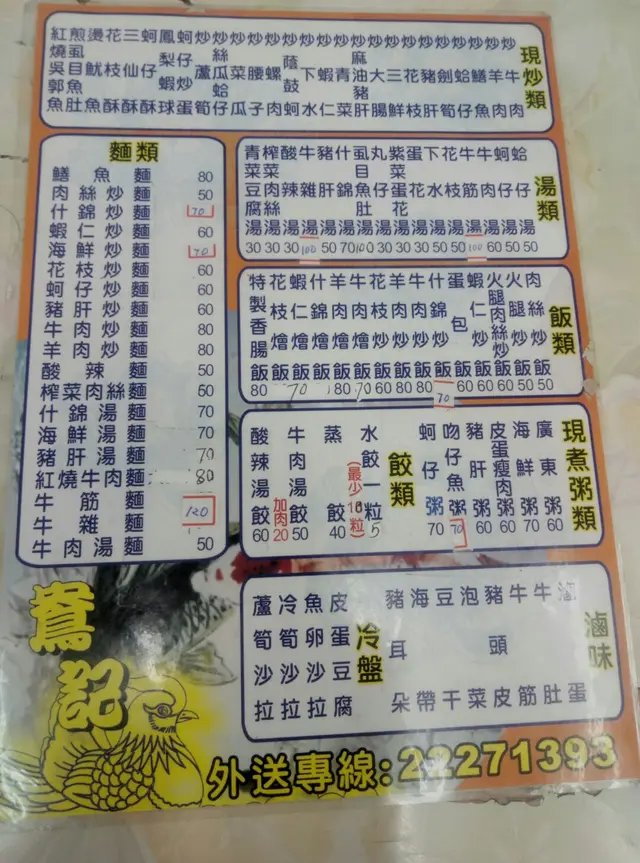 現炒類
炒牛肉
炒羊肉
炒鱔魚
炒蛤仔
炒劍筍
炒豬肝
炒花枝
炒三鮮
炒大腸
炒麻油豬肝
炒青菜
炒蝦仁
炒下水
炒蔭鼓蚵
炒螺肉
炒腰子
炒菜瓜
炒絲瓜蛤仔
炒蘆筍
蚵仔炒蛋
鳳梨蝦球
蚵仔酥
三仙酥
花枝酥
燙魷魚
煎虱目魚肚
紅燒吳郭魚
麵類
鱔魚麵 80
肉絲炒麵 50
什錦炒麵 70
蝦仁炒麵 60
海鮮炒麵 70
花枝炒麵 60
蚵仔炒麵 60
豬肝炒麵 60
牛肉炒麵 80
羊肉炒麵 80
酸辣麵 50
榨菜肉絲麵 50
什錦湯麵 70
海鮮湯麵 70
豬肝湯麵 70
紅燒牛肉麵 80
牛筋麵 120
牛雜麵
牛肉湯麵 50
湯類
蛤仔湯 50
蚵仔湯 50
牛肉湯 60
牛筋湯 100
花枝湯 50
下水湯 50
蛋花湯 30
紫菜蛋花湯 30
丸仔湯 30
虱目魚肚湯 100
什錦湯 70
豬肝湯 50
牛雜湯 100
酸辣湯 30
榨菜肉絲湯 30
青菜豆腐湯 30
飯類
肉絲炒飯 50
火腿炒飯 50
火腿肉絲炒飯 60
蝦仁炒飯 60
蛋包飯 60
什錦炒飯 70
牛肉炒飯 80
羊肉炒飯 80
花枝炒飯 60
牛肉燴飯 70
羊肉燴飯 80
什錦燴飯
蝦仁燴飯 70
花枝燴飯
特製香腸飯 80
現煮粥類
廣東粥 60
海鮮粥 70
皮蛋瘦肉粥 60
豬肝粥 60
吻仔魚粥 70
蚵仔粥 70
餃類
水餃一粒 5
(最少10粒)
蒸餃 40
牛肉湯餃 50
加肉20
酸辣湯餃 60
滷味
滷蛋
牛肚
牛筋
豬頭皮
泡菜
豆干
海帶
豬耳朵
冷盤
皮蛋豆腐
魚卵沙拉
冷筍沙拉
蘆筍沙拉
鴛記
外送專線:22271393